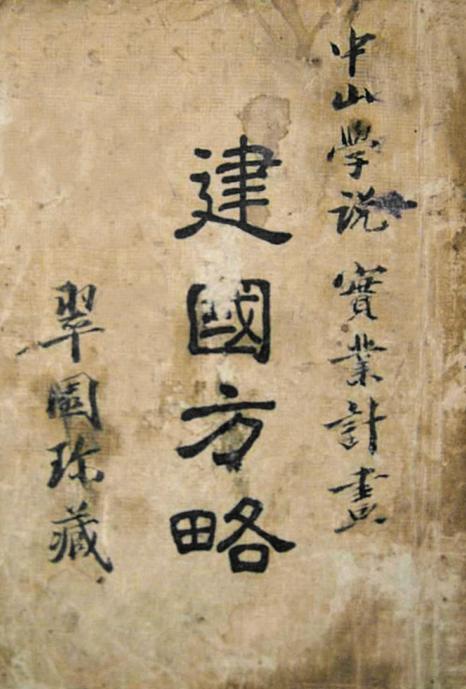 中山学说 實業計畫
建國方略
翠園珍藏